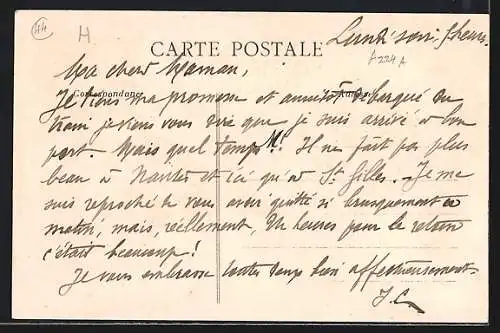 44
H
Lundi soir 5 heures
A 224 A
CARTE POSTALE
Ma chère Maman,
Correspondance
Je tiens ma promesse et aussitôt débarqué du
train je viens vous dire que je suis arrivé à bon
port. Mais quel temps !! Il ne fait pas plus
beau à Nantes et ici qu'à St Gilles. Je me
suis reproché de vous avoir quitté si brusquement ce
matin, mais, réellement, heures pour le retour
c'était beaucoup !
Je vous embrasse toutes deux bien affectueusement.
J.C.